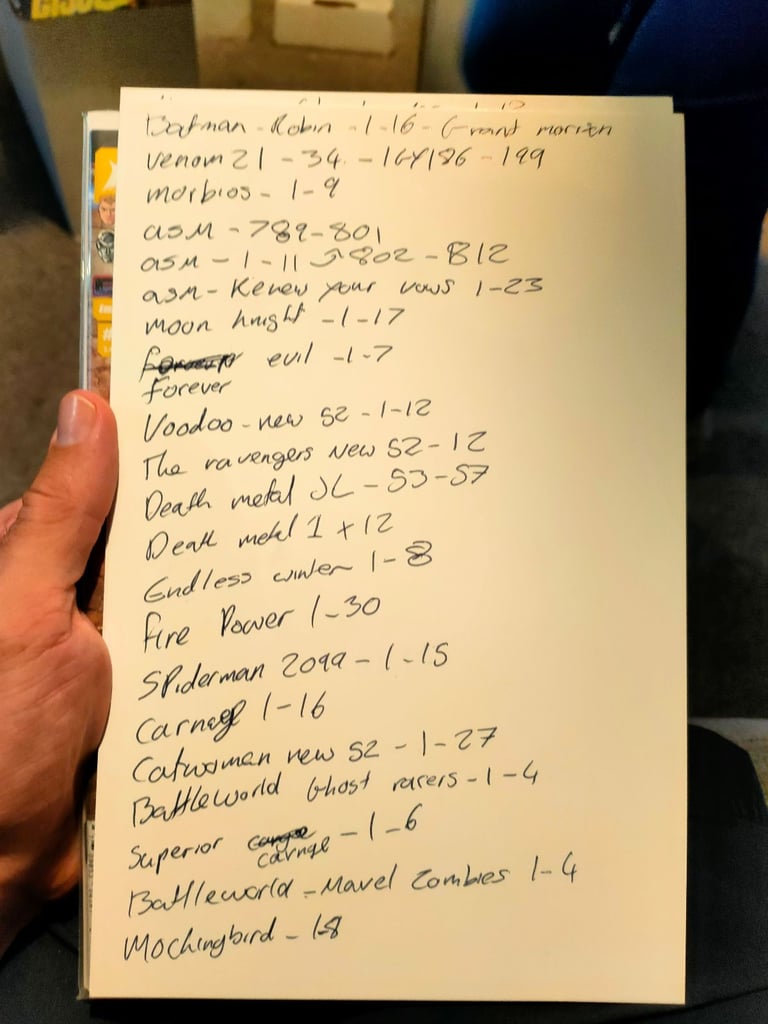 Batman - Robin - 1-16 - Grant morizn
Venom 21 - 34 - 164/186 - 199
morbios - 1-9
asm - 789-801
asm - 1-11 802 - 812
asm - Renew your vows 1-23
moon knight - 1-17
evil - 1-7
forever
Voodoo - new 52 - 1-12
The ravengers New 52 - 12
Death metal JL - 53-57
Death metal 1 + 12
Endless winter 1-8
fire Power 1-30
Spiderman 2099 - 1-15
Carnage 1-16
Catwoman new 52 - 1-27
Battleworld Ghost racers - 1-4
Superior carnage - 1-6
Battleworld - Mavel Zombies 1-4
Mockingbird - 1-8